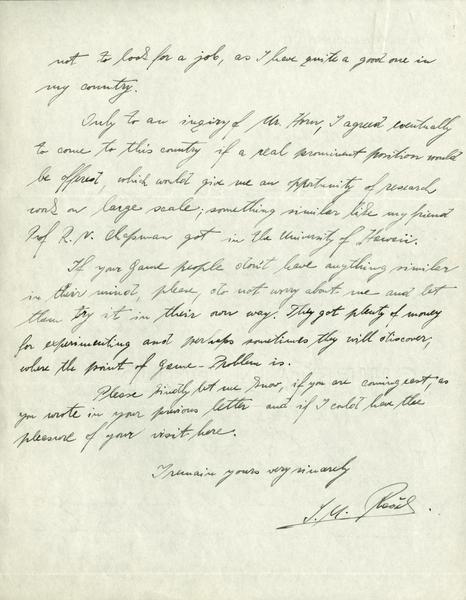 not to look for a job, as I have quite a good one in
my country.
Only to an inqiry of Mr. Horn, I agreed eventually
to come to this country if a real prominent position would
be offered, which would give me an opportunity of research
work on large scale; something similar like my friend
Prof R. N. Chapman got in the University of Hawaii.
If your Game people don't have anything similar
in their mind, please, do not worry about me and let
them try it in their own way. They got plenty of money
for experimenting and perhaps sometimes they will discover,
where the point of Game-Problem is.
Please kindly let me know, if you are coming east, as
you wrote in your previous letter and if I could have the
pleasure of your visit here.
I remain yours very sincerely